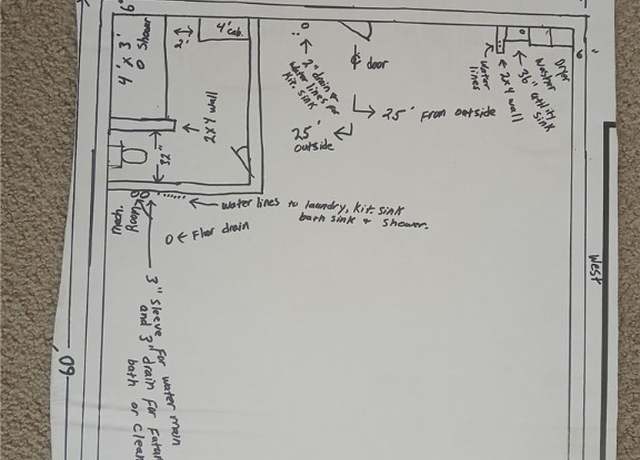 6'
4' x 3'
0 Shower
2'
4' cab.
2x4 wall
32"
2" drain &
water lines for
Kit sink
door
25' From outside
25'
outside
water
lines
2x4 wall
36" utility
sink
Washer
Dryer
6
West
water lines to laundry, Kit. sink
bath sink & shower.
0 ← Flor drain
3" sleeve For water main
and 3" drain For Futur
bath or Clean
60'